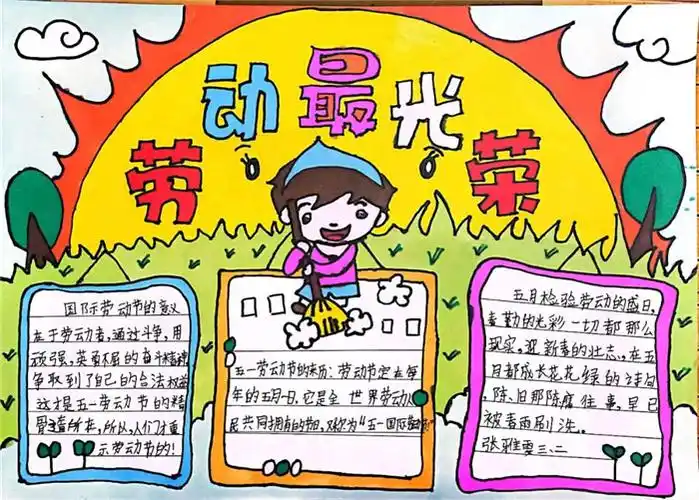 劳动最光荣
国际劳动节的意义
在于劳动者，通过斗争，用
顽强，英勇不屈的奋斗精神
争取到了自己的合法权益
这才是五一劳动节的精
所在，所以，人们才重
示劳动节的！
五一劳动节的来历：劳动节定在每
年的五月一日，它是全世界劳动人
民共同拥有的节日，又称为“五一国际劳动节”
五月检验劳动的盛日，
春勤的光彩一切都那么
现实，迎新春的壮志。在五
月都成长花花绿的诗句
，陈旧那陈腐往事，早已
被春雨刷洗。
张雅雯三、二